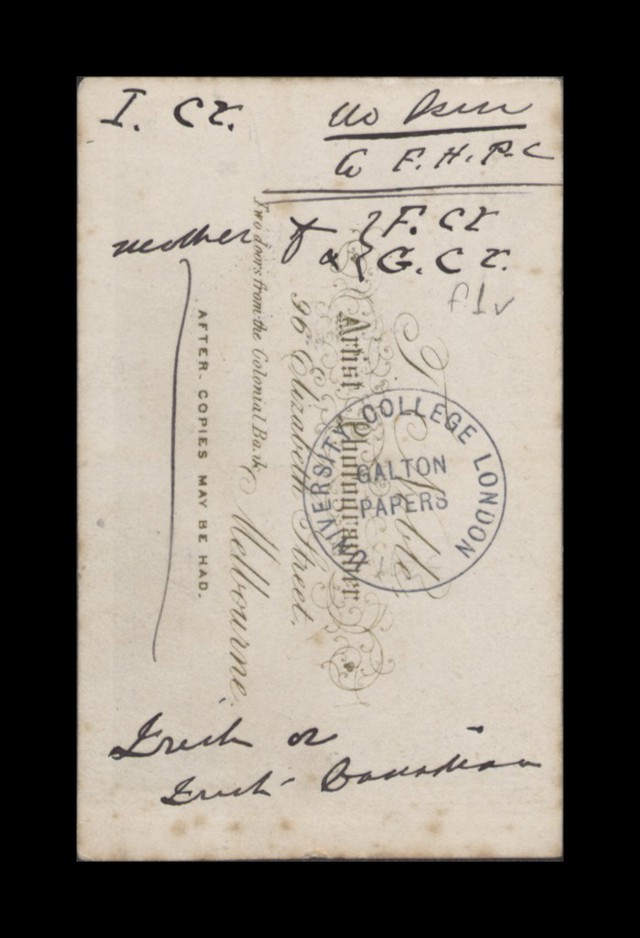 I. Cr.
to F.H.P.C
mother of
& { F. Cr
G. Cr.
f1v
T.
Artist Photographer
96 Elizabeth Street.
Melbourne.
Two doors from the Colonial Bank
AFTER. COPIES MAY BE HAD.
UNIVERSITY COLLEGE LONDON
GALTON
PAPERS
Irish or
Irish-Canadian